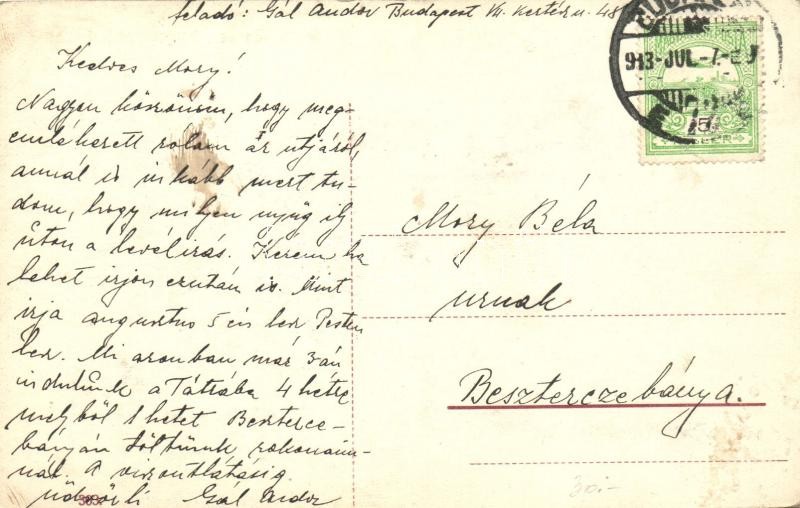 feladó: Gál Andor Budapest VII. Kertész u. 48
913-JUL.-7
5
Kedves Mory!
Nagyon köszönöm, hogy meg-
emlékezett rólam az útjáról,
annál is inkább mert tu-
dom, hogy milyen nyüg ily
úton a levélirás. Kérem ha
lehet irjon ezután is. Mint
irja augusztus 5 én lesz Pesten
lesz. Mi azonban már 3-án
indulunk a Tátrába 4 hétre
melyből 1 hetet Beszterce-
bányán töltünk rokonaim-
nál. A viszontlátásig
üdvözli Gál Andor
Mory Béla
urnak
Beszterczebánya.
30.-